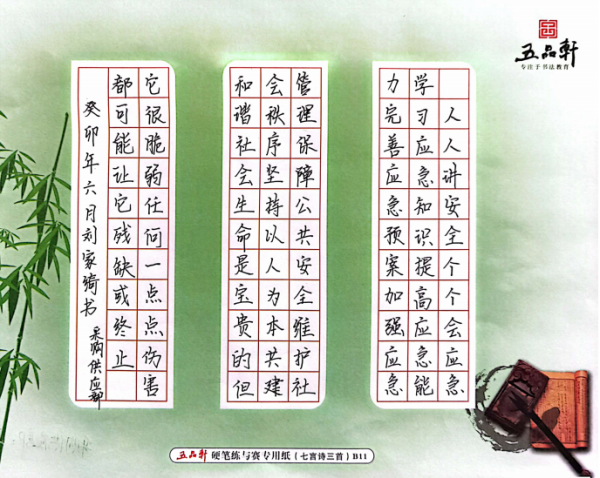 五品軒
专注于书法教育
人人讲安全个个会应急
学习应急知识提高应急能
力完善应急预案加强应急
管理保障公共安全维护社
会秩序坚持以人为本共建
和谐社会生命是宝贵的但
它很脆弱任何一点点伤害
都可能让它残缺或终止
癸卯年六月刘家绮书
采购供应部
五品軒 硬笔练与赛专用纸（七言诗三首）B11